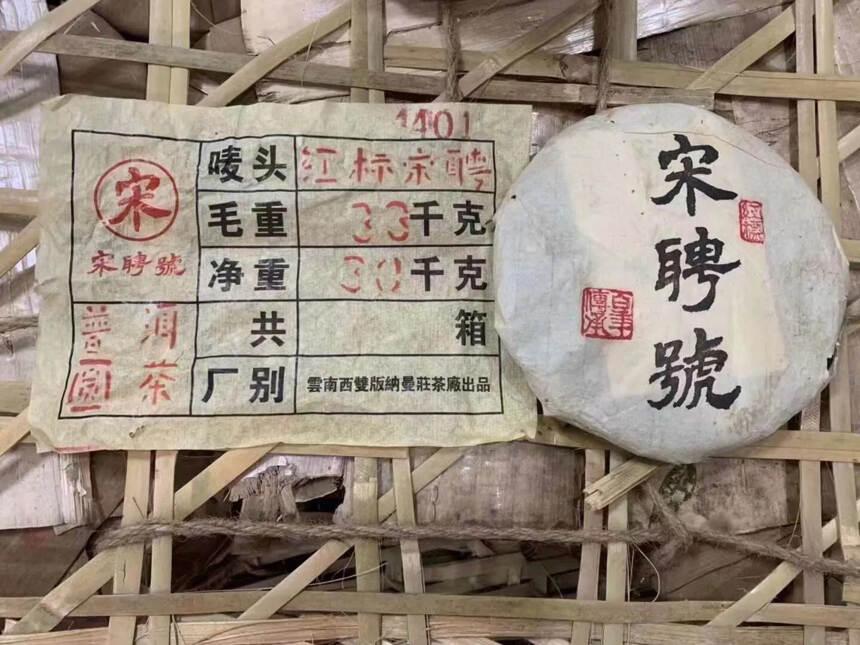 1401
宋
宋聘號
普洱
圆茶
唛头 红标宋聘
毛重 33千克
净重 30千克
共 箱
厂别 雲南西雙版納曼莊茶廠出品
宋聘號
红標
百年
傳承